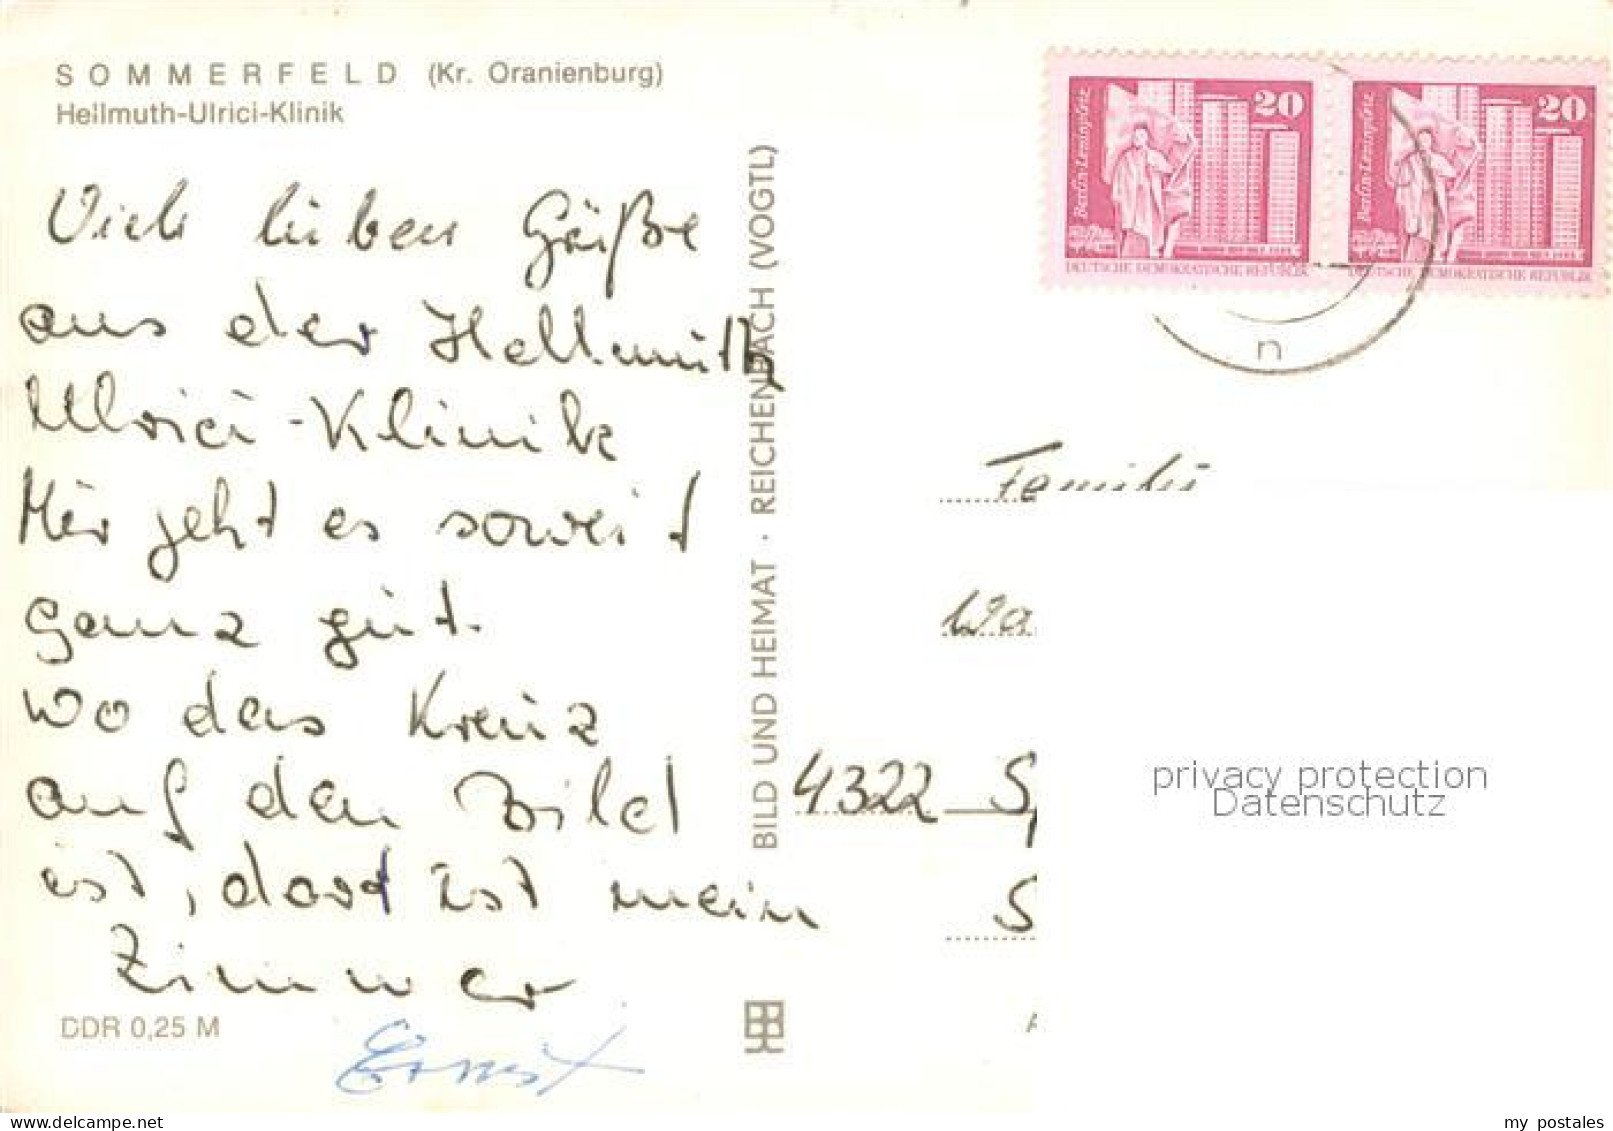 SOMMERFELD (Kr. Oranienburg)
Heilmuth-Ulrici-Klinik
Viele lieben Grüße
aus der Hellmuth
Ulrici-Klinik
Mir geht es soweit
ganz gut.
Wo das Kreuz
auf den Bild
ist, dort ist mein
Zimmer
Ernst
DDR 0,25 M
BILD UND HEIMAT · REICHENBACH (VOGTL)
Berlin-Leninplatz
20
DEUTSCHE DEMOKRATISCHE REPUBLIK
Berlin-Leninplatz
20
DEUTSCHE DEMOKRATISCHE REPUBLIK
n
Familie
Wa
4322 S
S
privacy protection
Datenschutz
www.delcampe.net
my_postales